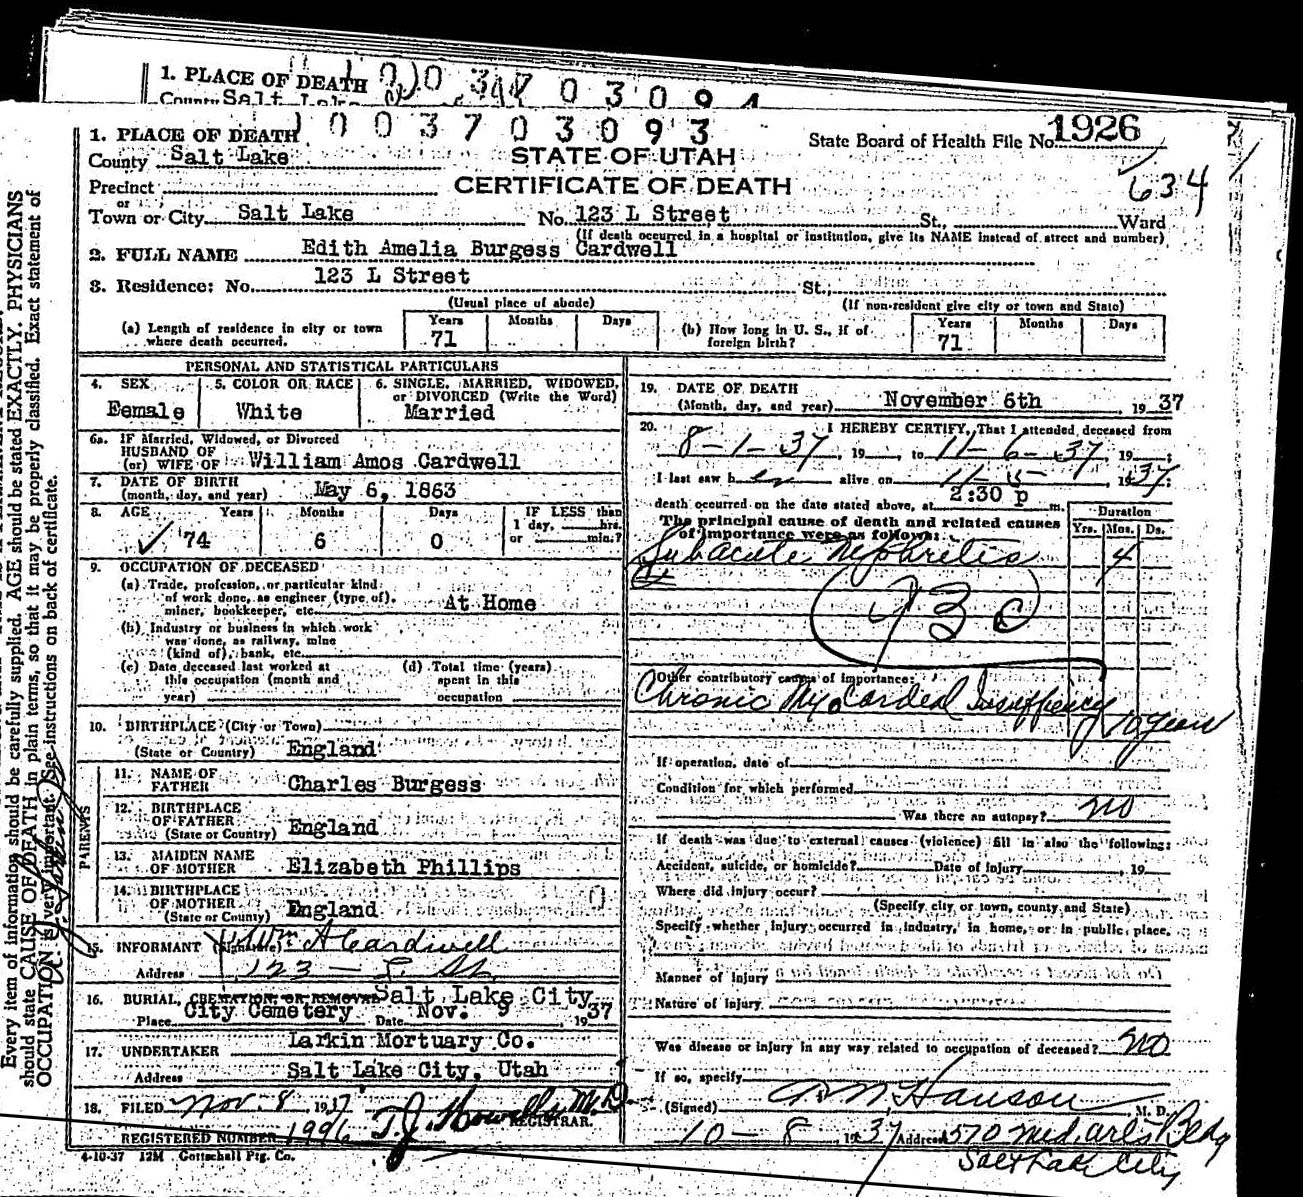 1. PLACE OF DEATH
County Salt Lake
1003703094
1. PLACE OF DEATH
1003703093
State Board of Health File No. 1926
County Salt Lake
STATE OF UTAH
634
Precinct
CERTIFICATE OF DEATH
or
Town or City Salt Lake No. 123 L Street St., Ward
(If death occurred in a hospital or institution, give its NAME instead of street and number)
2. FULL NAME Edith Amelia Burgess Cardwell
3. Residence: No. 123 L Street St.,
(Usual place of abode) (If non-resident give city or town and State)
(a) Length of residence in city or town where death occurred. Years 71 Months Days
(b) How long in U. S., if of foreign birth? Years 71 Months Days
PERSONAL AND STATISTICAL PARTICULARS
4. SEX Female
5. COLOR OR RACE White
6. SINGLE, MARRIED, WIDOWED, or DIVORCED (Write the Word) Married
6a. If Married, Widowed, or Divorced
HUSBAND OF
(or) WIFE OF William Amos Cardwell
7. DATE OF BIRTH
(month, day, and year) May 6, 1863
8. AGE Years Months Days IF LESS than
1 day, hrs.
or min.?
74 6 0
9. OCCUPATION OF DECEASED
(a) Trade, profession, or particular kind
of work done, as engineer (type of),
miner, bookkeeper, etc. At Home
(b) Industry or business in which work
was done, as railway, mine
(kind of), bank, etc.
(c) Date deceased last worked at
this occupation (month and
year)
(d) Total time (years)
spent in this
occupation
10. BIRTHPLACE (City or Town)
(State or Country) England
PARENTS
11. NAME OF
FATHER Charles Burgess
12. BIRTHPLACE
OF FATHER
(State or Country) England
13. MAIDEN NAME
OF MOTHER Elizabeth Phillips
14. BIRTHPLACE
OF MOTHER
(State or County) England
15. INFORMANT Wm A Cardwell
Address 123 - L St.
16. BURIAL, CREMATION, OR REMOVAL Salt Lake City
Place City Cemetery Date Nov. 9, 1937
17. UNDERTAKER Larkin Mortuary Co.
Address Salt Lake City, Utah
18. FILED Nov. 8 1937 T. J. Howells M.D.
REGISTRAR.
REGISTERED NUMBER 1996
4-10-37 12M Gottschall Ptg. Co.
19. DATE OF DEATH
(Month, day, and year) November 6th, 1937
20. I HEREBY CERTIFY, That I attended deceased from
8-1-37, 19 , to 11-6-37, 19 ;
I last saw her alive on 11-5-, 1937;
death occurred on the date stated above, at 2:30 p m.
The principal cause of death and related causes
of importance were as follows:
Duration
Yrs. Mos. Ds.
Subacute Nephritis 4
93c
Other contributory causes of importance:
Chronic Myocardial Insufficiency 10 years
If operation, date of
Condition for which performed
Was there an autopsy? no
If death was due to external causes (violence) fill in also the following:
Accident, suicide, or homicide? Date of injury , 19
Where did injury occur?
(Specify city or town, county and State)
Specify whether injury occurred in industry, in home, or in public place.
Manner of injury
Nature of injury
Was disease or injury in any way related to occupation of deceased? no
If so, specify
(Signed) Hanson M. D.
10-8, 1937 Address 570 Med. Arts Bldg
Salt Lake City
Every item of information should be carefully supplied. AGE should be stated EXACTLY. PHYSICIANS
should state CAUSE OF DEATH in plain terms, so that it may be properly classified. Exact statement of
OCCUPATION is very important. See instructions on back of certificate.